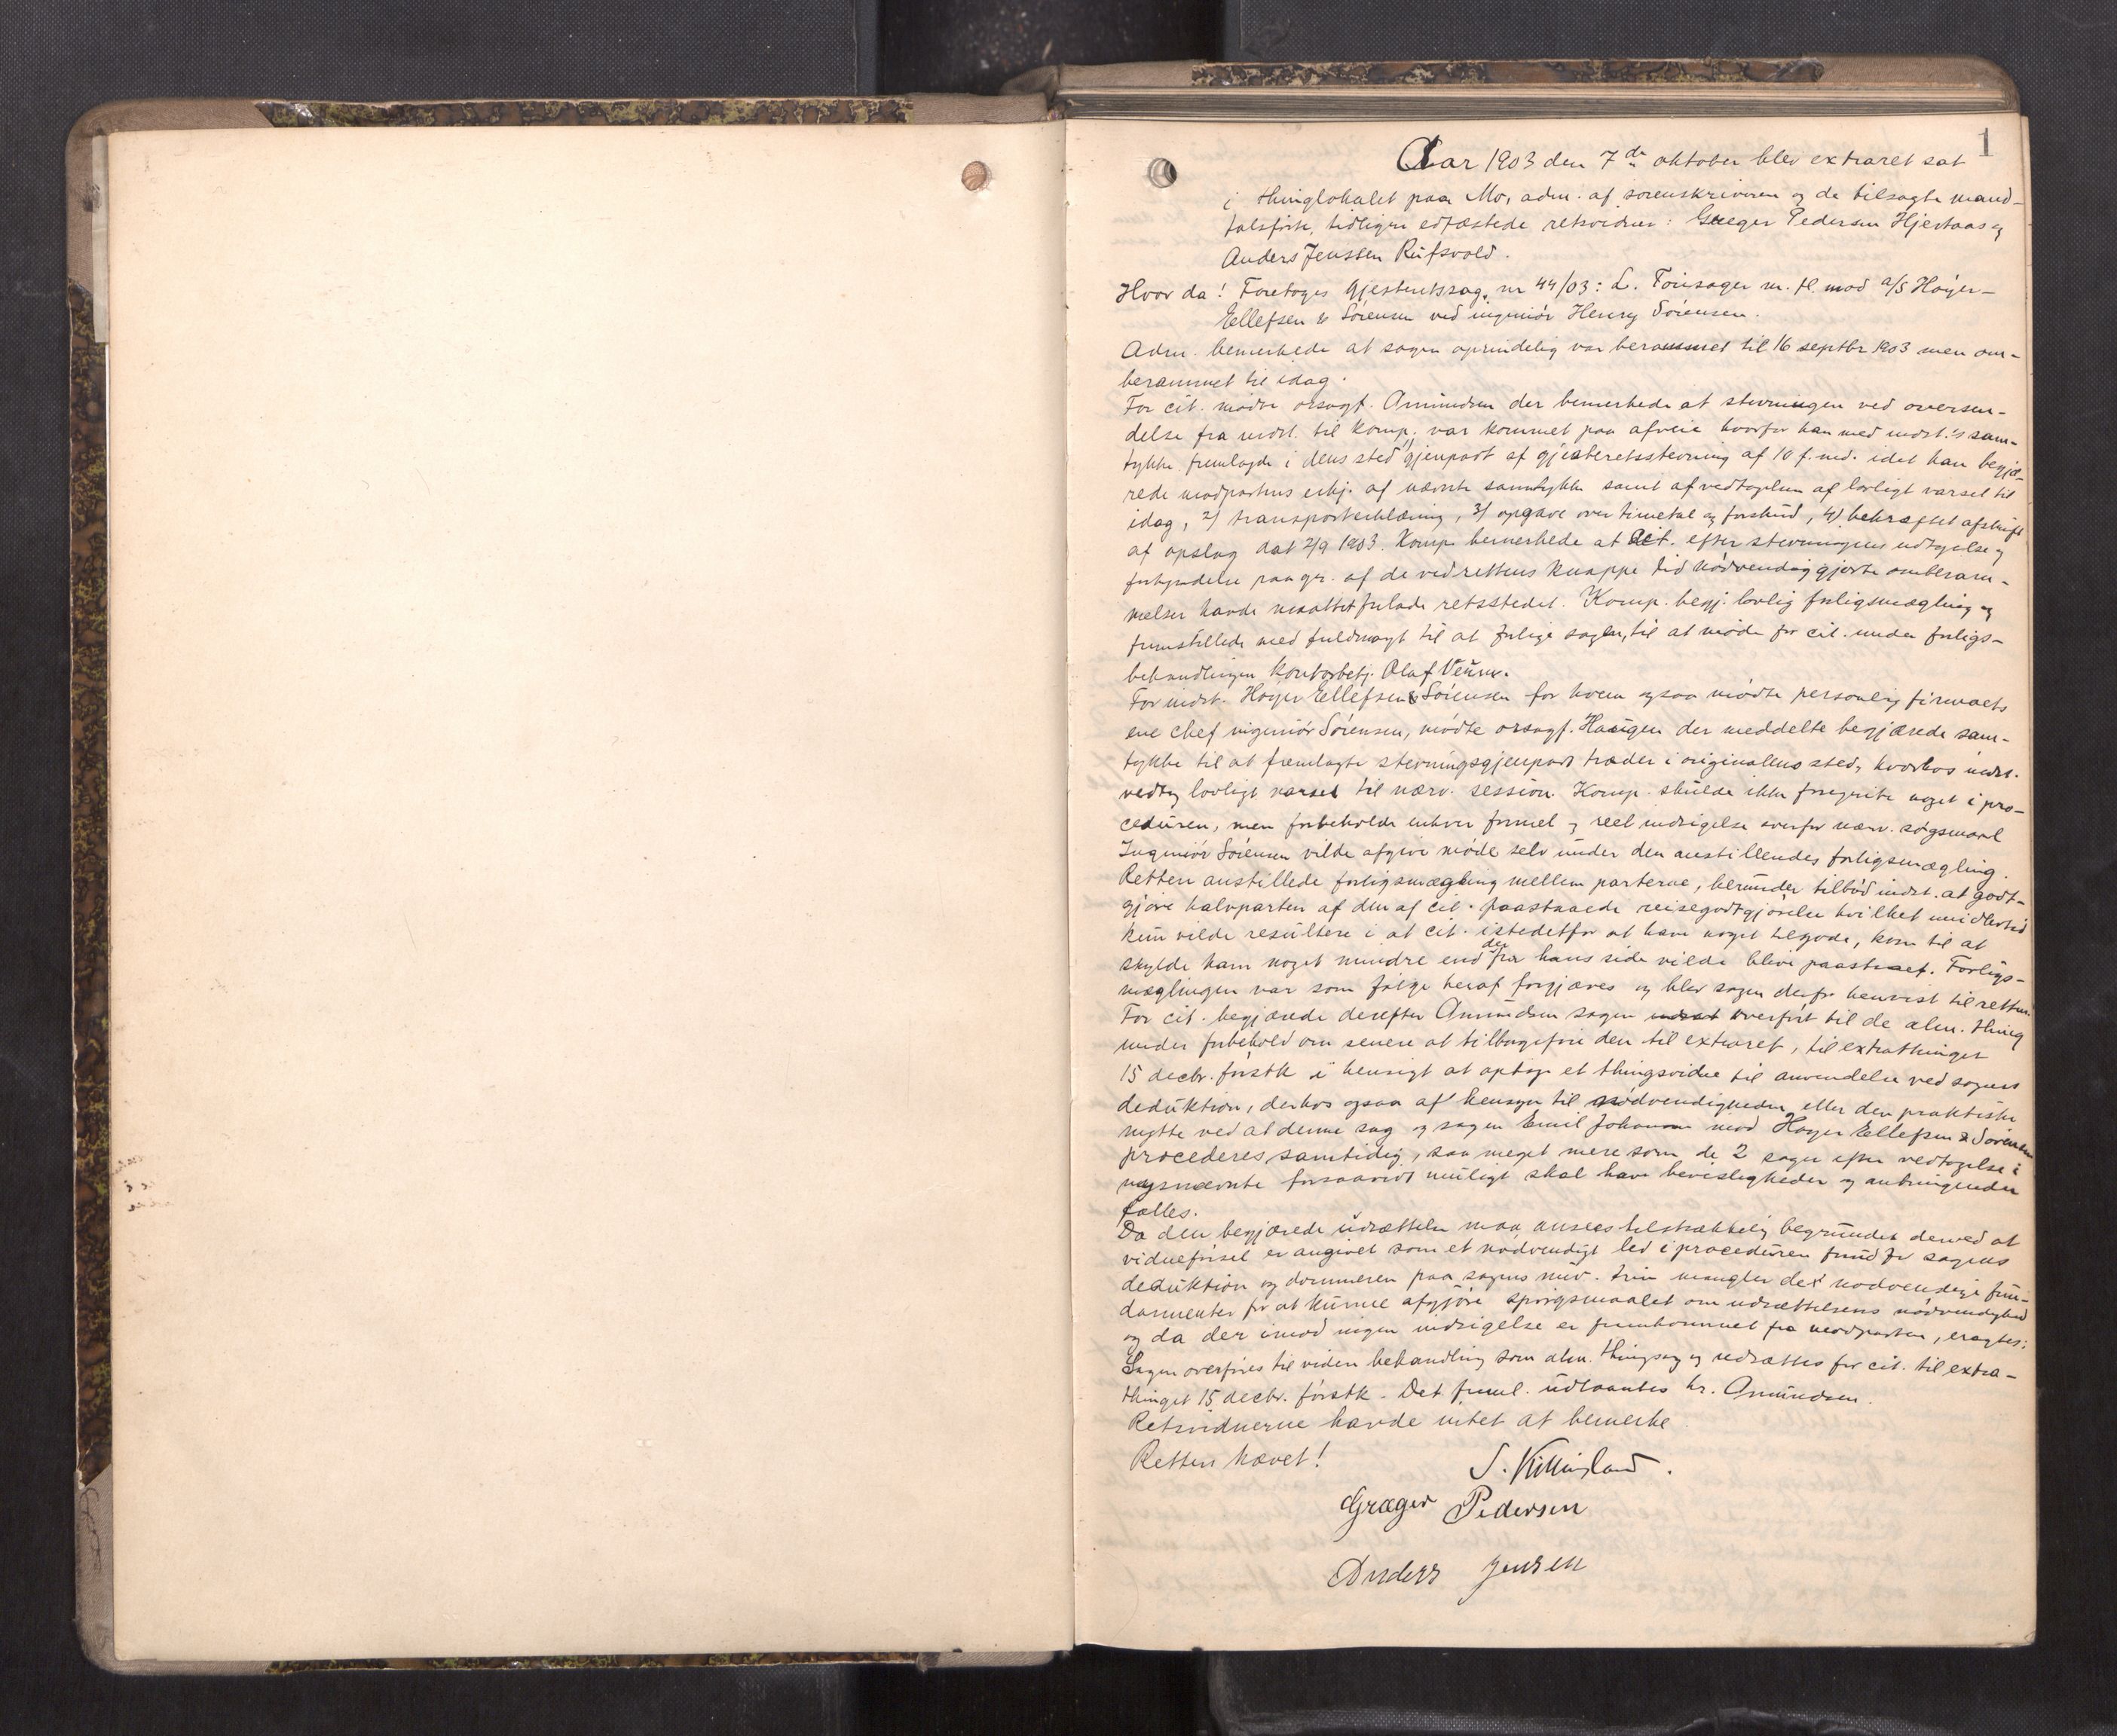 1
Aar 1903 den 7de oktober blev extraret sat
i thinglokalet paa Mo, adm. af sorenskriveren og de tilsagte mand-
talsførte, tidligere edfæstede retsvidner: Græger Pedersen Hjertaas og
Anders Jenssen Rufsvold.
Hvor da! Foretoges Gjesteretssag nr 44/03: L. Torisager m. fl. mod a/s Høyer-
Ellefsen & Sørensen ved ingeniør Henry Sørensen.
Adm. bemerkede at sagen oprindelig var berammet til 16 septbr 1903 men om-
berammet til idag.
For cit. mødte orsagf. Amundsen der bemerkede at stevningen ved oversen-
delse fra indst. til komp. var kommet paa afveie hvorfor han med indst.'s sam-
tykke fremlagde i dens sted gjenpart af gjesteretsstevning af 10 f. md. idet han begjæ-
rede modpartens erkj. af nævnte samtykke samt af vedtagelsen af lovligt varsel til
idag, 2) transporterklæring, 3) opgave over timetal og forskud, 4) bekræftet afskrift
af opslag dat 2/9 1903. Komp. bemerkede at Cit. efter stevningens udtagelse og
forkyndelse paa gr. af de ved rettens knappe tid nødvendiggjorte omberam-
melser havde maattet forlade retsstedet. Komp. begj. lovlig forligsmægling og
fremstillede med fuldmagt til at forlige sagen, til at møde for cit. under forligs-
behandlingen kontorbetj. Olaf Vennes.
For indst. Høyer Ellefsen & Sørensen for hvem ogsaa mødte personlig firmaets
ene chef ingeniør Sørensen, mødte orsagf. Haugen der meddelte begjærede sam-
tykke til at fremlagte stevningsgjenpart træder i originallens sted, hvorhos indst.
vedtog lovligt varsel til nærv. session. Komp. skulde ikke foregribe noget i pro-
ceduren, men forbeholde enhver formel og reel indsigelse overfor nærv. søgsmaal
Ingeniør Sørensen vilde afgive møde selv under den anstillendes forligsmægling.
Retten anstillede forligsmægling mellem parterne, herunder tilbød indst. at godt-
gjøre halvparten af den af cit. paastaaede reisegodtgjørelse hvilket imidlertid
kun vilde resultere i at cit. istedetfor at have noget tilgode, kom til at
skylde ham noget mindre end der fra hans side vilde blive paastaaet. Forligs-
mæglingen var som følge heraf forgjæves og blev sagen derfor henvist til retten.
For cit. begjærede derefter Amundsen sagen udsat overført til de alm. thing
under forbehold om senere at tilbageføre den til extraret, til extrathinget
15 decbr. førstk i hensigt at optage et thingsvidne til anvendelse ved sagens
deduktion, derhos ogsaa af hensyn til nødvendigheden eller den praktiske
nytte ved at denne sag og sagen Emil Johansen mod Høyer Ellefsen & Sørensen
procederes samtidig, saa meget mere som de 2 sager efter vedtagelse i
nysnævnte forsaavidt muligt skal have bevisligheder og anbringender
fælles.
Da den begjærede udsættelse maa ansees tilstrækkelig begrundet derved at
vidneførsel er angivet som et nødvendigt led i proceduren forud for sagens
deduktion og dommeren paa sagens nuv. trin mangler de nødvendige fun-
damenter for at kunne afgjøre spørgsmaalet om udsættelsens nødvendighed
og da der imod ingen indsigelse er fremkommet fra modparten, eragtes:
Sagen overføres til viden behandling som alm. thingsag og udsættes for cit. til extra-
thinget 15 decbr. førstk. Det freml. udlaantes hr. Amundsen.
Retsvidnerne havde intet at bemerke
Retten hævet!
S. Killingland.
Græger Pedersen
Anders Jensen